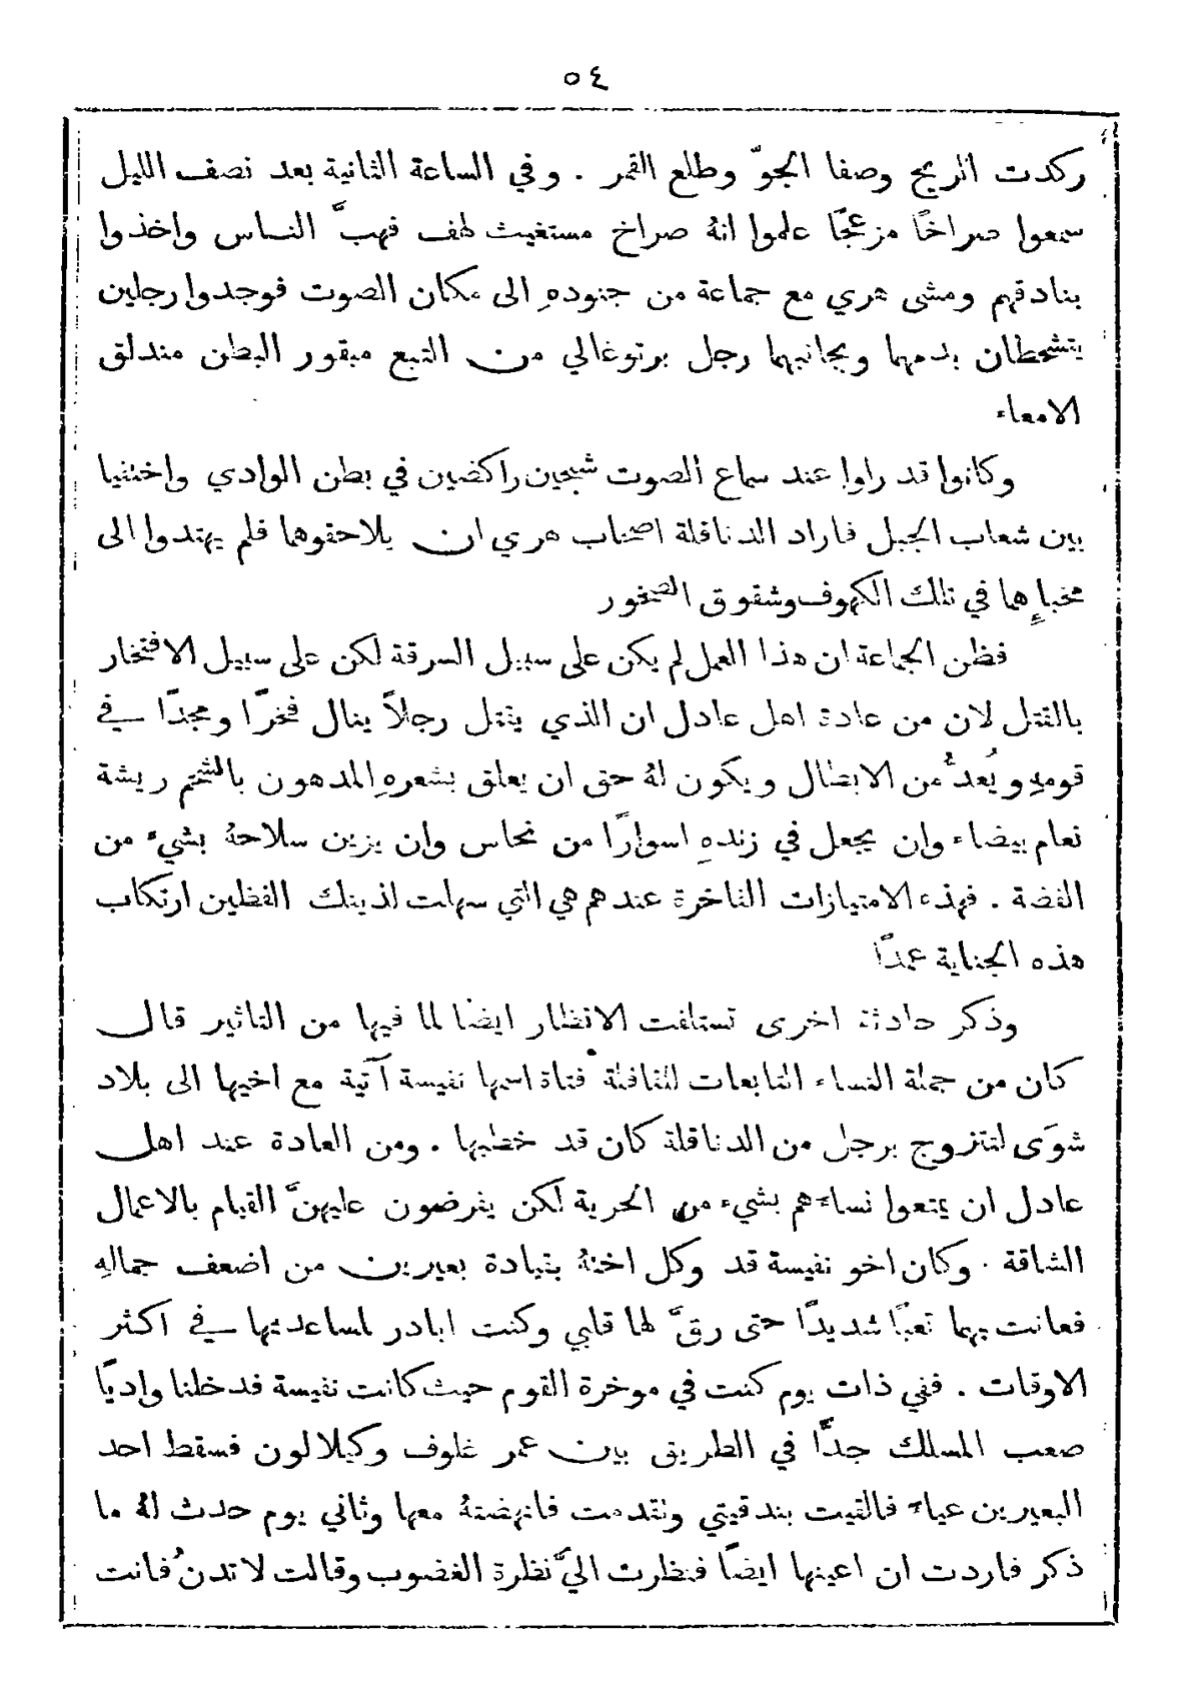 ٥٤
ركدت الريح وصفا الجوّ وطلع القمر . وفي الساعة الثانية بعد نصف الليل
سمعوا صراخًا مزعجًا علموا انهُ صراخ مستغيث لهف فهبَّ الناس واخذوا
بنادقهم ومشى هري مع جماعة من جنودهِ الى مكان الصوت فوجدوا رجلين
يتشحطان بدمهما وبجانبهما رجل برتوغالي من التبع مبقور البطن مندلق
الامعاء
وكانوا قد راوا عند سماع الصوت شبحين راكضين في بطن الوادي واختفيا
بين شعاب الجبل فاراد الدناقلة اصحاب هري ان يلاحقوهما فلم يهتدوا الى
مخباءِهما في تلك الكهوف وشقوق الصخور
فظن الجماعة ان هذا العمل لم يكن على سبيل السرقة لكن على سبيل الافتخار
بالقتل لان من عادة اهل عادل ان الذي يقتل رجلاً ينال فخرًا ومجدًا في
قومهِ ويُعدُّ من الابطال ويكون لهُ حق ان يعلق بشعرهِ المدهون بالشحم ريشة
نعام بيضاء وان يجعل في زندهِ اسوارًا من نحاس وان يزين سلاحهُ بشيء من
الفضة . فهذه الامتيازات الفاخرة عندهم هي التي سهلت لذينك الفظين ارتكاب
هذه الجناية عمدًا
وذكر حادثة اخرى تستلفت الانظار ايضًا لما فيها من التاثير قال
كان من جملة النساء التابعات للقافلة فتاة اسمها نفيسة آتية مع اخيها الى بلاد
شوَى لتتزوج برجل من الدناقلة كان قد خطبها . ومن العادة عند اهل
عادل ان يمتعوا نساءَهم بشيء من الحرية لكن يفرضون عليهنَّ القيام بالاعمال
الشاقة . وكان اخو نفيسة قد وكل اختهُ بقيادة بعيرين من اضعف جمالهِ
فعانت بهما تعبًا شديدًا حتى رقَّ لها قلبي وكنت ابادر لمساعدتها في اكثر
الاوقات . ففي ذات يوم كنت في موخرة القوم حيث كانت نفيسة فدخلنا واديًا
صعب المسلك جدًّا في الطريق بين عمر غلوف وكيلالون فسقط احد
البعيرين عياءً فالقيت بندقيتي وتقدمت فانهضتهُ معها وثاني يوم حدث لهُ ما
ذكر فاردت ان اعينها ايضًا فنظرت اليَّ نظرة الغضوب وقالت لا تدنُ فانت